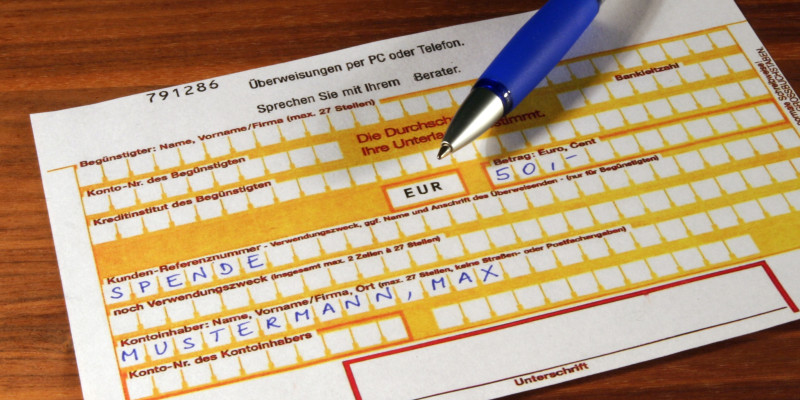 791286
Überweisungen per PC oder Telefon.
Sprechen Sie mit Ihrem Berater.
Begünstigter: Name, Vorname/Firma (max. 27 Stellen)
Konto-Nr. des Begünstigten
Bankleitzahl
Die Durchsch bestimmt.
Ihre Unterla
Kreditinstitut des Begünstigten
EUR
Betrag: Euro, Cent
50,-
Kunden-Referenznummer - Verwendungszweck, ggf. Name und Anschrift des Überweisenden - (nur für Begünstigten)
SPENDE
noch Verwendungszweck (insgesamt max. 2 Zeilen à 27 Stellen)
Kontoinhaber: Name, Vorname/Firma, Ort (max. 27 Stellen, keine Straßen- oder Postfachangaben)
MUSTERMANN, MAX
Konto-Nr. des Kontoinhabers
Unterschrift